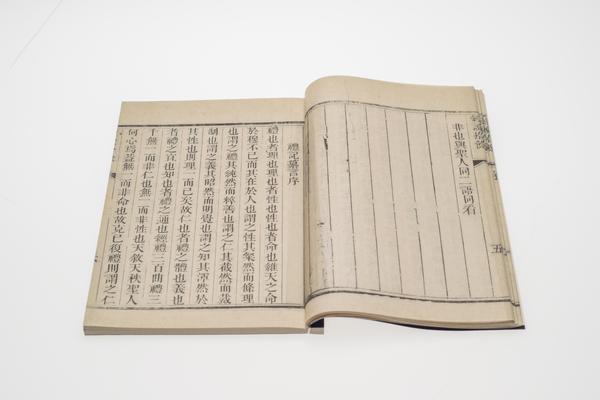 非也與聖人同二語同看
五
禮記纂言序
禮也者理也理也者性也性也者命也維天之命
於穆不已而其在於人也謂之性其粲然而條理
也謂之禮其純然而粹善也謂之仁其截然而裁
制也謂之義其昭然而明覺也謂之知其渾然於
其性也則理一而已矣故仁也者禮之體也義也
者禮之宜也知也者禮之通也經禮三百曲禮三
千無一而非仁也無一而非性也天敘天秩聖人
何心焉蓋無一而非命也故克己復禮則謂之仁